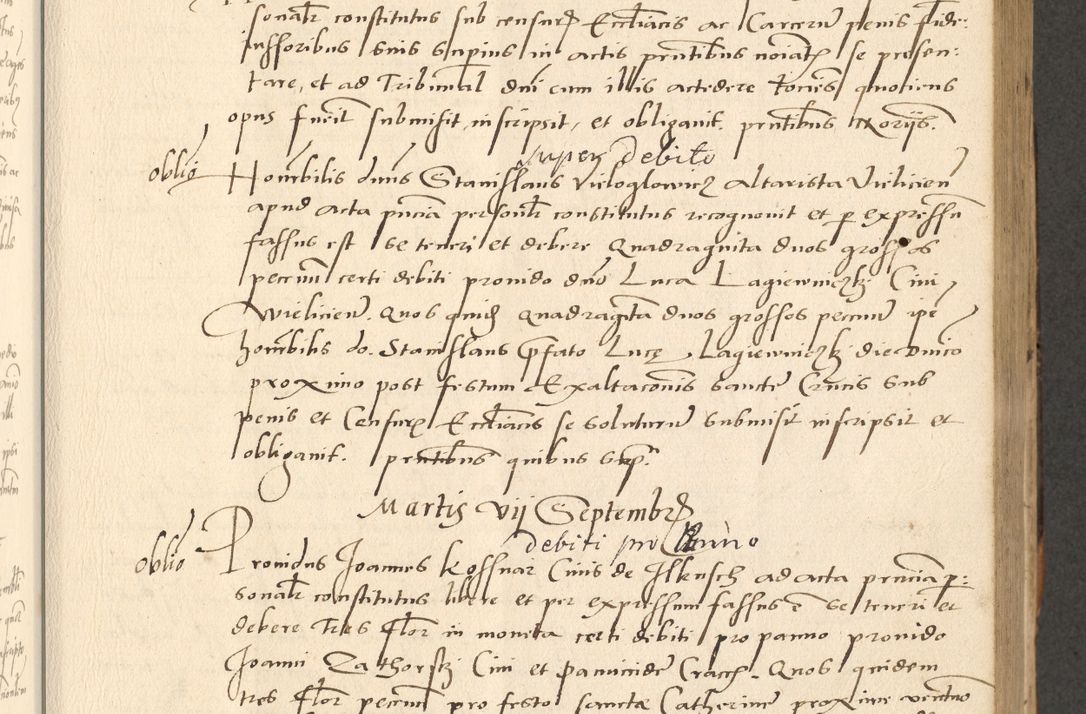 sonalr constitutus sub censurȩ Eccliacis ac Carcerũ penis fide:
iussoribus suis superius in actis pntibus noiatȩ se presen:
tare, et ad Tribunal dni cum illis accedere totiens quotiens
opus fuerit submisit, inscripsit, et obligauit. pntibus Notoriis.
super debito
oblio Honorbilis dnus Stanislaus Vieloglowicz altarista Vielicien
apud acta pncia personalr constitutus recognouit et p expressũ
fassus est se teneri et debere quadraginta duos grossos
peccuñ certi debiti prouido dno Luca Lagiewniczki Ciui
Wielicieñ. Quos quidẽ quadraginta duos grossos peccuñ ipe
honorbilis do. Stanislaus pfato Lucę Lagiewniczki die dnico
proximo post festum Exaltaconis sancte Crucis sub
penis et Censurȩ Eccliacis se soluturũ submisit inscripsit et
obligauit. pntibus quibus sup.
Martis vij Septembrȩ
debiti pro panno
oblio Prouidus Joannes Kossnar Ciuis de Ilkusch ad acta pncia p:
sonalr constitutus libere et per expressum fassus ẽ se teneri et
debere tres flor in moneta certi debiti pro panno prouido
Joanni Zathorski Ciui et pannicide Cracȩ. Quos quidem
tres flor peccuñ pro festo sancte Catherine proxime venturo